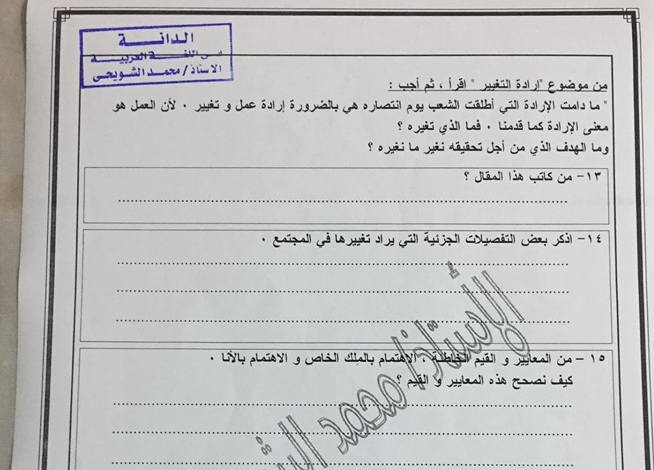 الدانة
في اللغة العربية
الأستاذ/محمد الشويحى
من موضوع "إرادة التغيير" اقرأ ، ثم أجب :
" ما دامت الإرادة التي أطلقت الشعب يوم انتصاره هي بالضرورة إرادة عمل و تغيير ٠ لأن العمل هو
معنى الإرادة كما قدمنا ٠ فما الذي تغيره ؟
وما الهدف الذي من أجل تحقيقه نغير ما نغيره ؟
١٣- من كاتب هذا المقال ؟
١٤- اذكر بعض التفصيلات الجزئية التي يراد تغييرها في المجتمع ٠
١٥ - من المعايير و القيم الخاطئة ، الاهتمام بالملك الخاص و الاهتمام بالأنا ٠
كيف نصحح هذه المعايير و القيم ؟
الأستاذ/ محمد